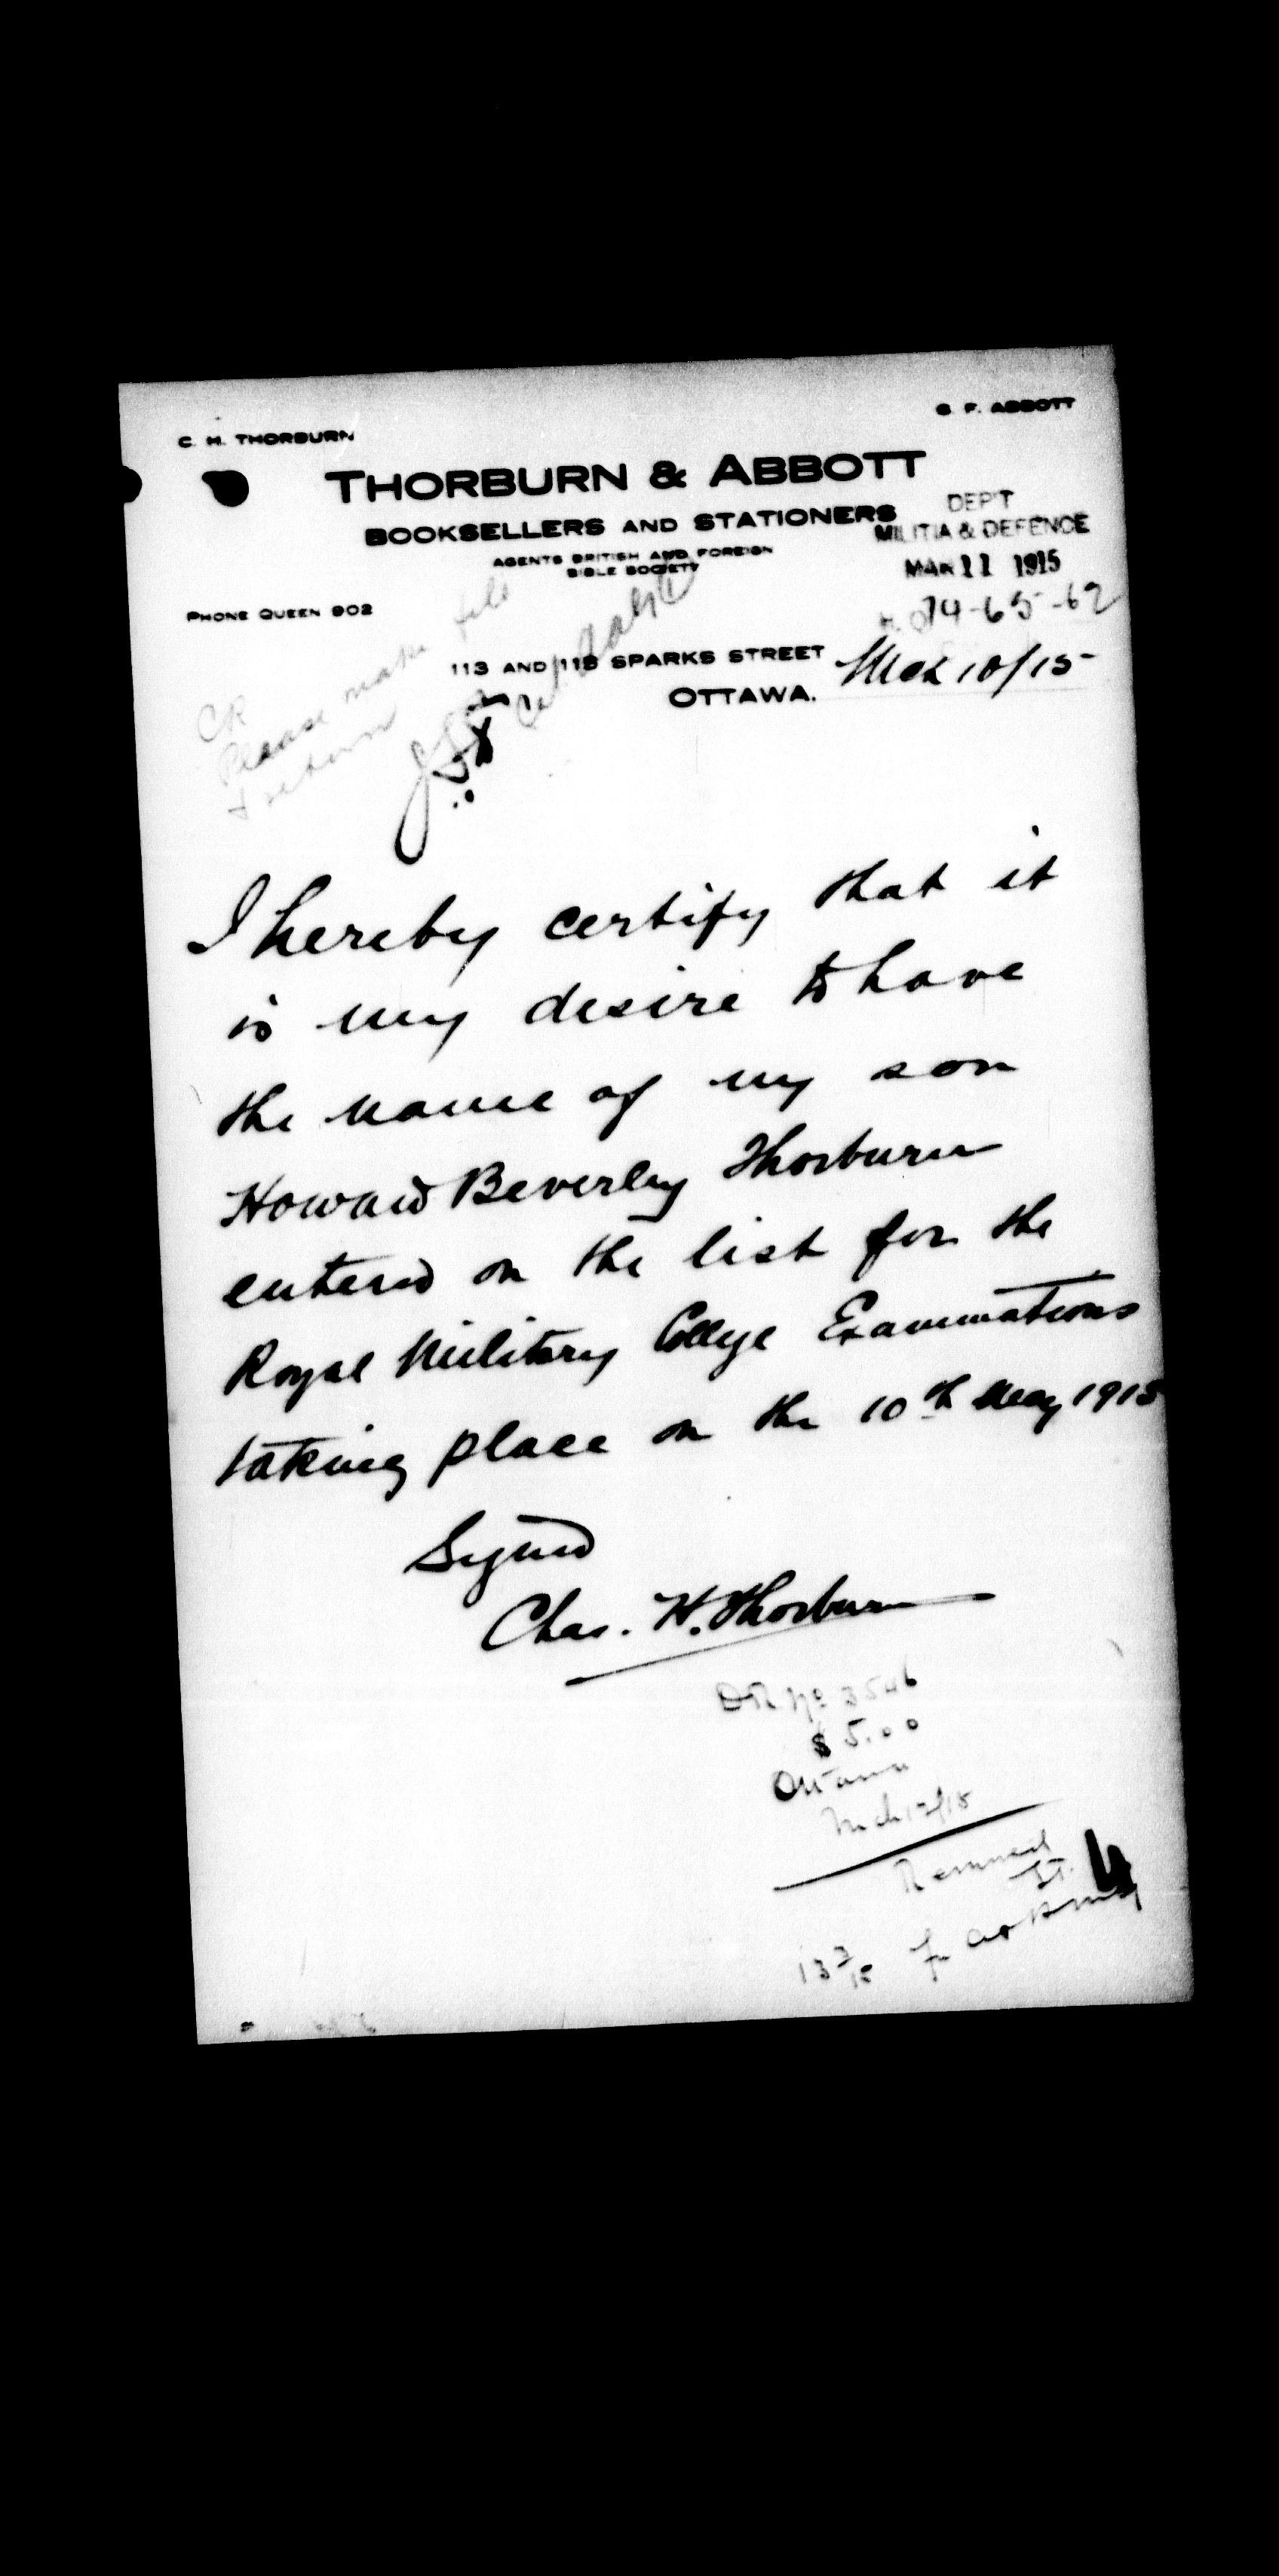 C. H. THORBURN
S. F. ABBOTT
THORBURN & ABBOTT
BOOKSELLERS AND STATIONERS
AGENTS BRITISH AND FOREIGN
BIBLE SOCIETY
DEP'T
MILITIA & DEFENCE
MAR 11 1915
74-65-62
PHONE QUEEN 902
113 AND 115 SPARKS STREET
OTTAWA.
Mch 10/15
CR
Please make file
& return
I hereby certify that it
is my desire to have
the name of my son
Howard Beverley Thorburn
entered on the list for the
Royal Military College Examinations
taking place on the 10th May 1915
Signed
Chas. H. Thorburn
DR No 3546
$5.00
Ottawa
Mch 12/15